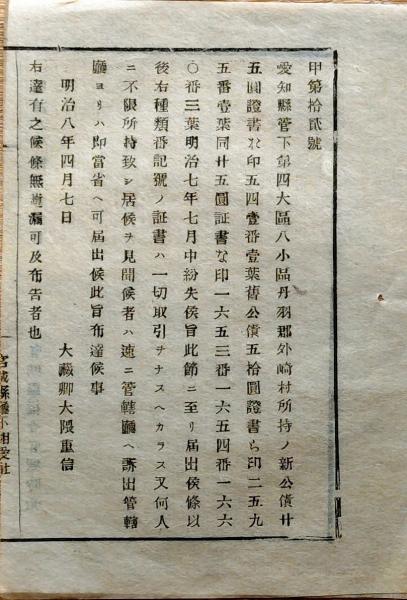 甲第拾貳號
愛知縣管下第四大區八小區丹羽郡外崎村所持ノ新公債廿
五圓證書な印五四壹番壹葉舊公債五拾圓證書ら印二五九
五番壹葉同廿五圓証書な印一六五三番一六五四番一六六
〇番三葉明治七年七月中紛失候旨此節ニ至リ届出候條以
後右種類番記號ノ証書ハ一切取引チナスヘカラス又何人
ニ不限所持致シ居候ヲ見聞候者ハ速ニ管轄廳ヘ訴出管轄
廳ヨリハ即當省ヘ可届出候此旨布達候事
明治八年四月七日
大藏卿大隈重信
右達有之候條無遺漏可及布告者也
宮城縣